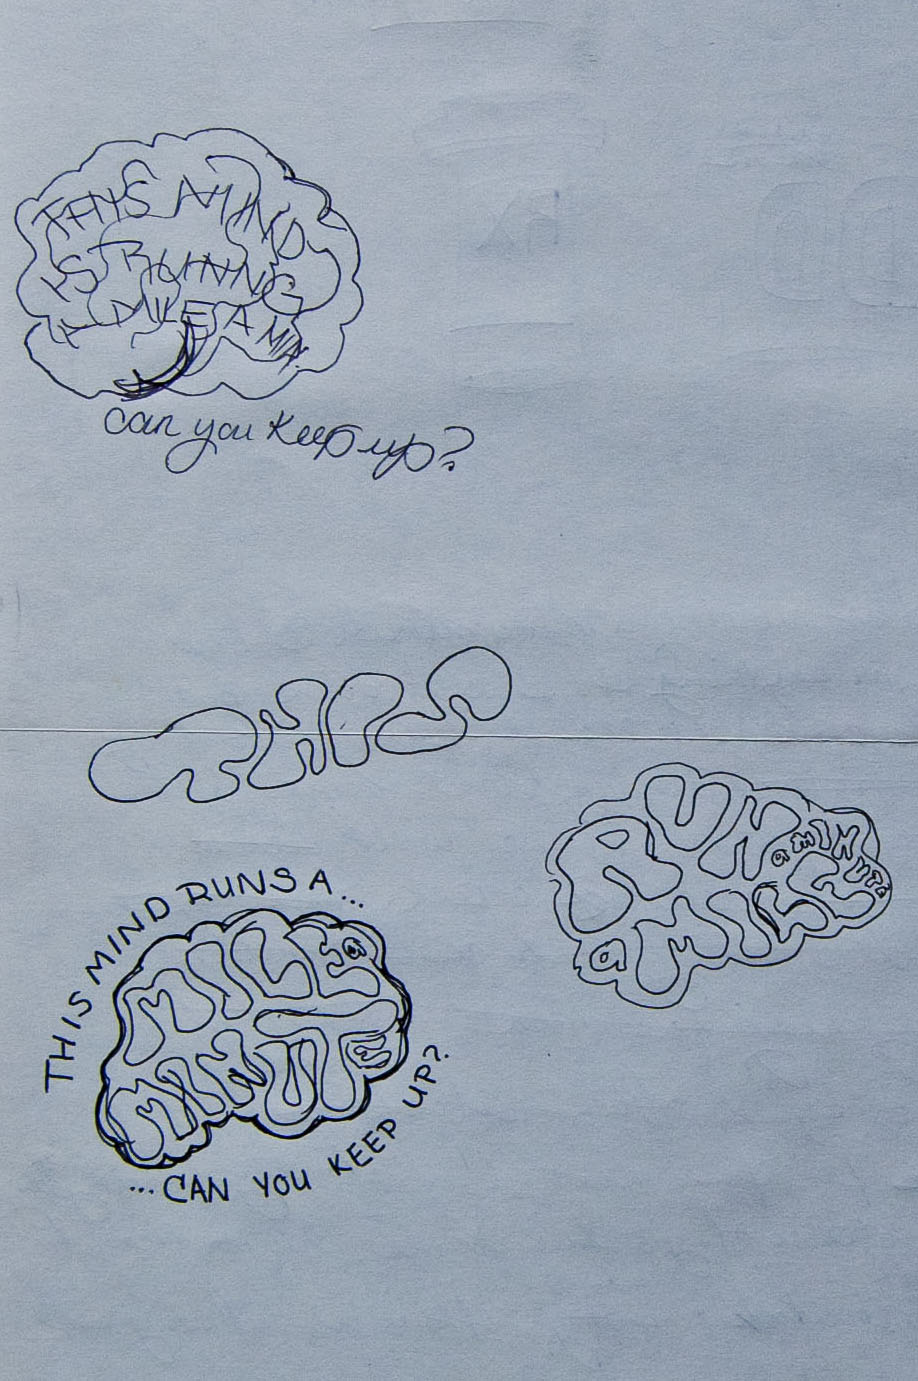 THIS MIND
IS RUNNING
A MILE A MI
can you keep up?
THIS
RUN
a MILE
a MINUTE
THIS MIND RUNS A...
MILE a
MINUTE
...CAN YOU KEEP UP?